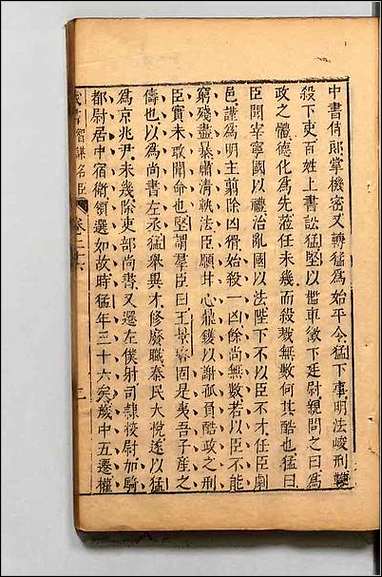 中書侍郎掌機密又轉猛爲始平令猛下車明法峻刑鞭
殺下吏百姓上書訟猛堅以檻車徵下廷尉親問之曰爲
政之體德化爲先蒞任未幾而殺戮無數何其酷也猛曰
臣聞宰寧國以禮治亂邦以法陛下不以臣不才任臣劇
邑謹爲明主剪除凶猾始殺一凶餘尚無數若以臣不能
窮殘盡暴肅清執法臣願甘心鼎鑊以謝孤負酷政之刑
臣實未敢聞命也堅謂羣臣曰王景略固是夷吾子產之
儔也以爲尚書左丞猛舉異才修廢職秦民大悅遂以猛
爲京兆尹未幾除吏部尚書又遷左僕射司隷校尉加騎
都尉居中宿衛領選如故時猛年三十六矣歲中五遷權
智謀名臣
卷二十六